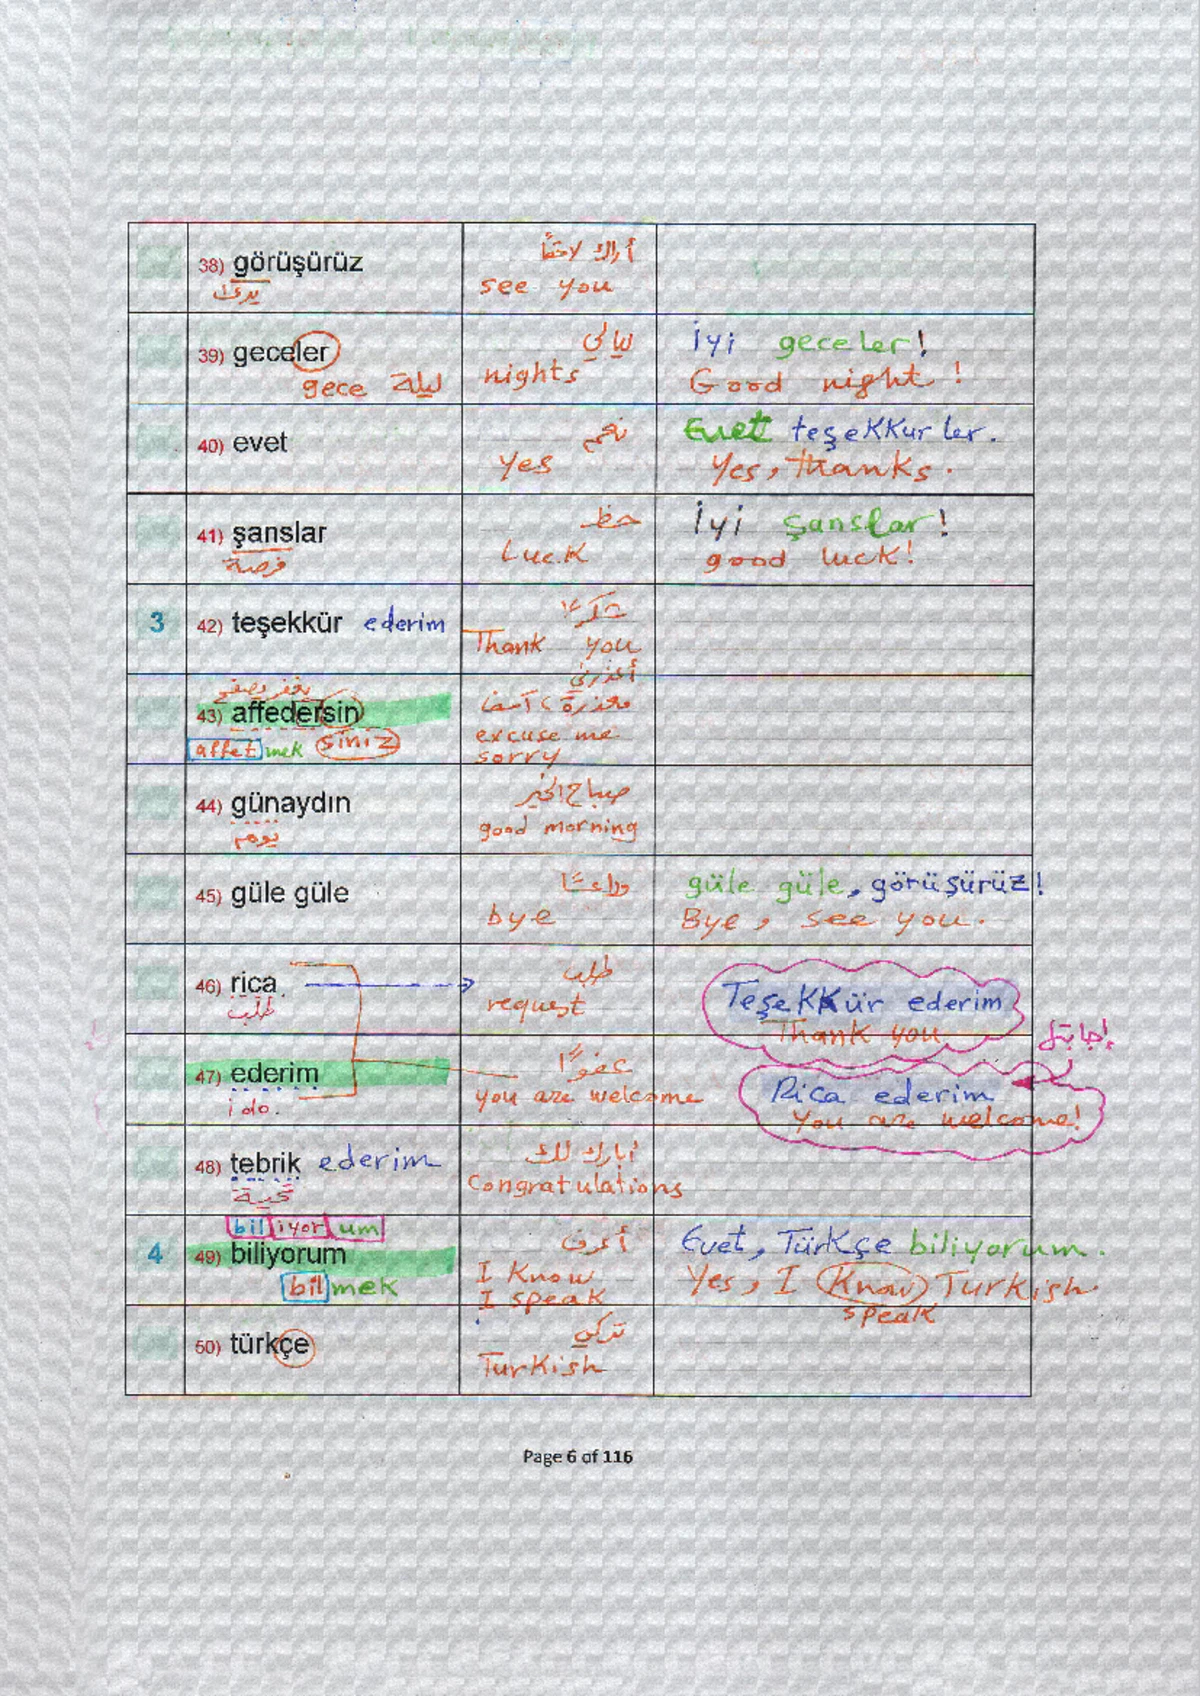 38) görüşürüz
يرى
أراك لاحقاً
see you
39) geceler
gece ليلة
ليالي
nights
İyi geceler!
Good night !
40) evet
نعم
yes
Evet teşekkurler.
Yes, thanks.
41) şanslar
فرصة
حظ
Luck
İyi şanslar!
good luck!
3
42) teşekkür ederim
شكرًا
Thank you
43) affedersin
يغفر يصفح
affetmek siniz
أعذرني
معذرة، آسف
excuse me
sorry
44) günaydın
يوم
صباح الخير
good morning
45) güle güle
وداعًا
bye
güle güle, görüşürüz!
Bye, see you.
46) rica
طلب
طلب
request
Teşekkür ederim
Thank you
إجابتها
47) ederim
i do.
عفوًا
you are welcome
Rica ederim
You are welcome!
48) tebrik ederim
تحية
أبارك لك
Congratulations
4
biliyorum
49) biliyorum
bilmek
أعرف
I Know
I speak
Evet, Türkçe biliyorum.
Yes, I Know Turkish.
speak
50) türkçe
تركي
Turkish
Page 6 of 116